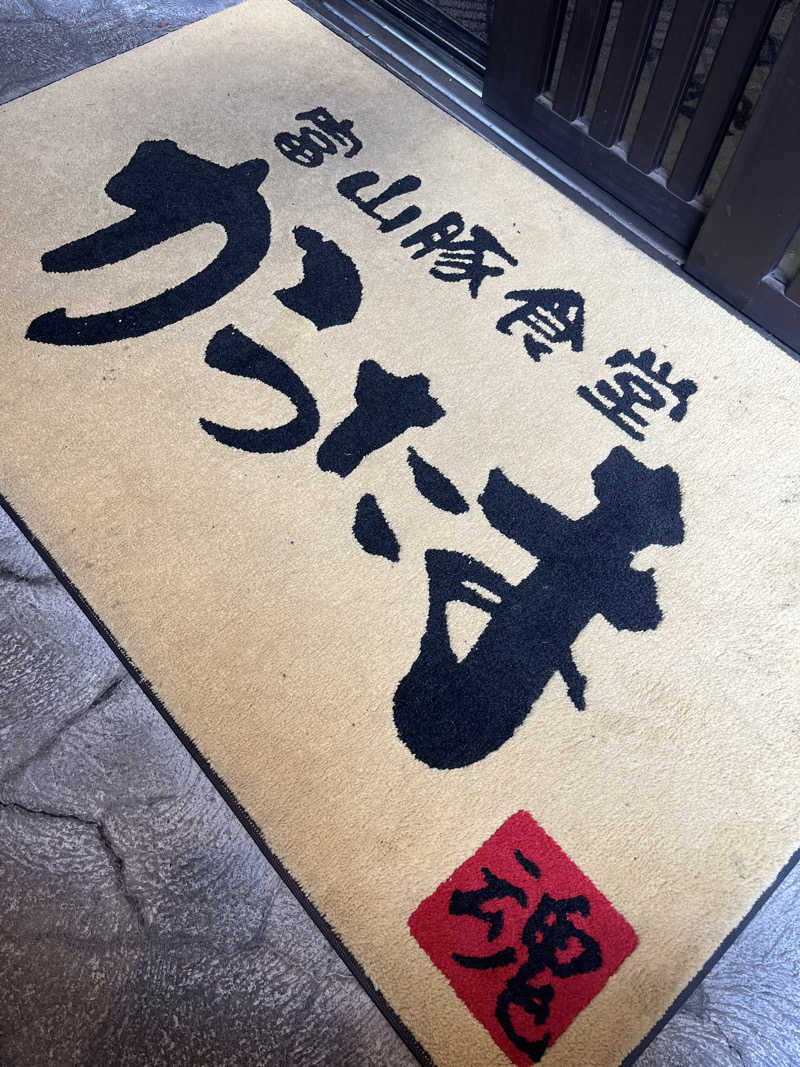 富山豚食堂
かつたま
魂